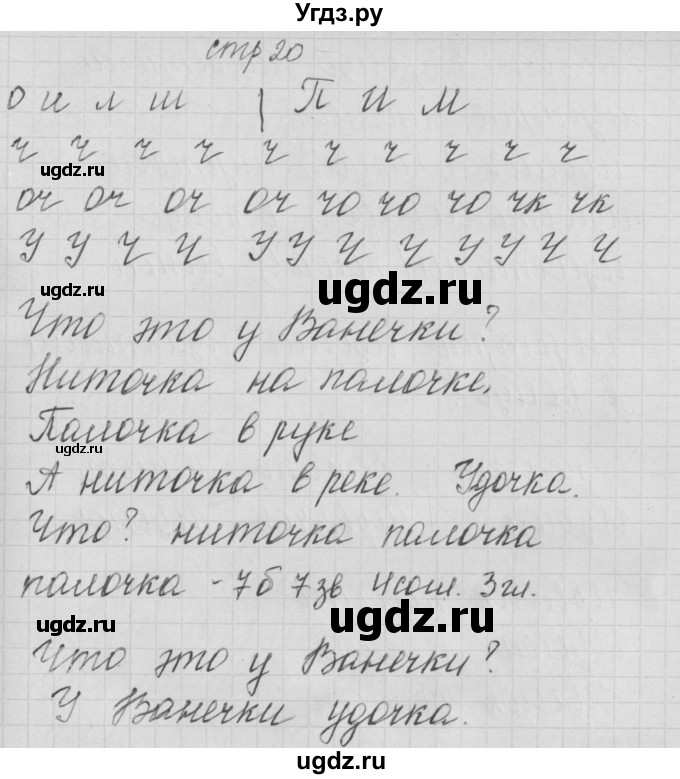 Угдз.ру
стр 20
о и л ш | П И М
ч ч ч ч ч ч ч ч ч ч
ugdz.ru
ugdz.ru
оч оч оч оч чо чо чо чк чк
У У Ч Ч У У Ч Ч У У Ч Ч
ugdz.ru
ugdz.ru
Что это у Ванечки?
Ниточка на палочке,
Палочка в руке
ugdz.ru
А ниточка в реке. Удочка.
Что? ниточка палочка
палочка - 7 б 7 зв 4 согл. 3 гл.
ugdz.ru
ugdz.ru
Что это у Ванечки?
У Ванечки удочка.
ugdz.ru
ugdz.ru